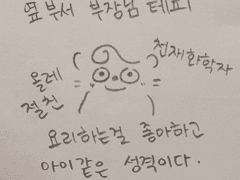 옆부서 부장님 테피
천재화학자
올레
절친
요리하는걸 좋아하고
아이같은 성격이다.